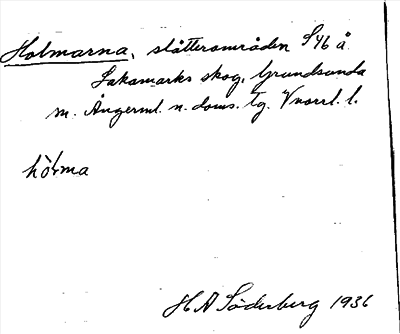 Holmarna, slåtterområden S46 å
Lakamarks skog, Grundsunda
m. Ångerml. n. doms. tg. Vnorrl. l.
hòlma
H A Söderberg 1936